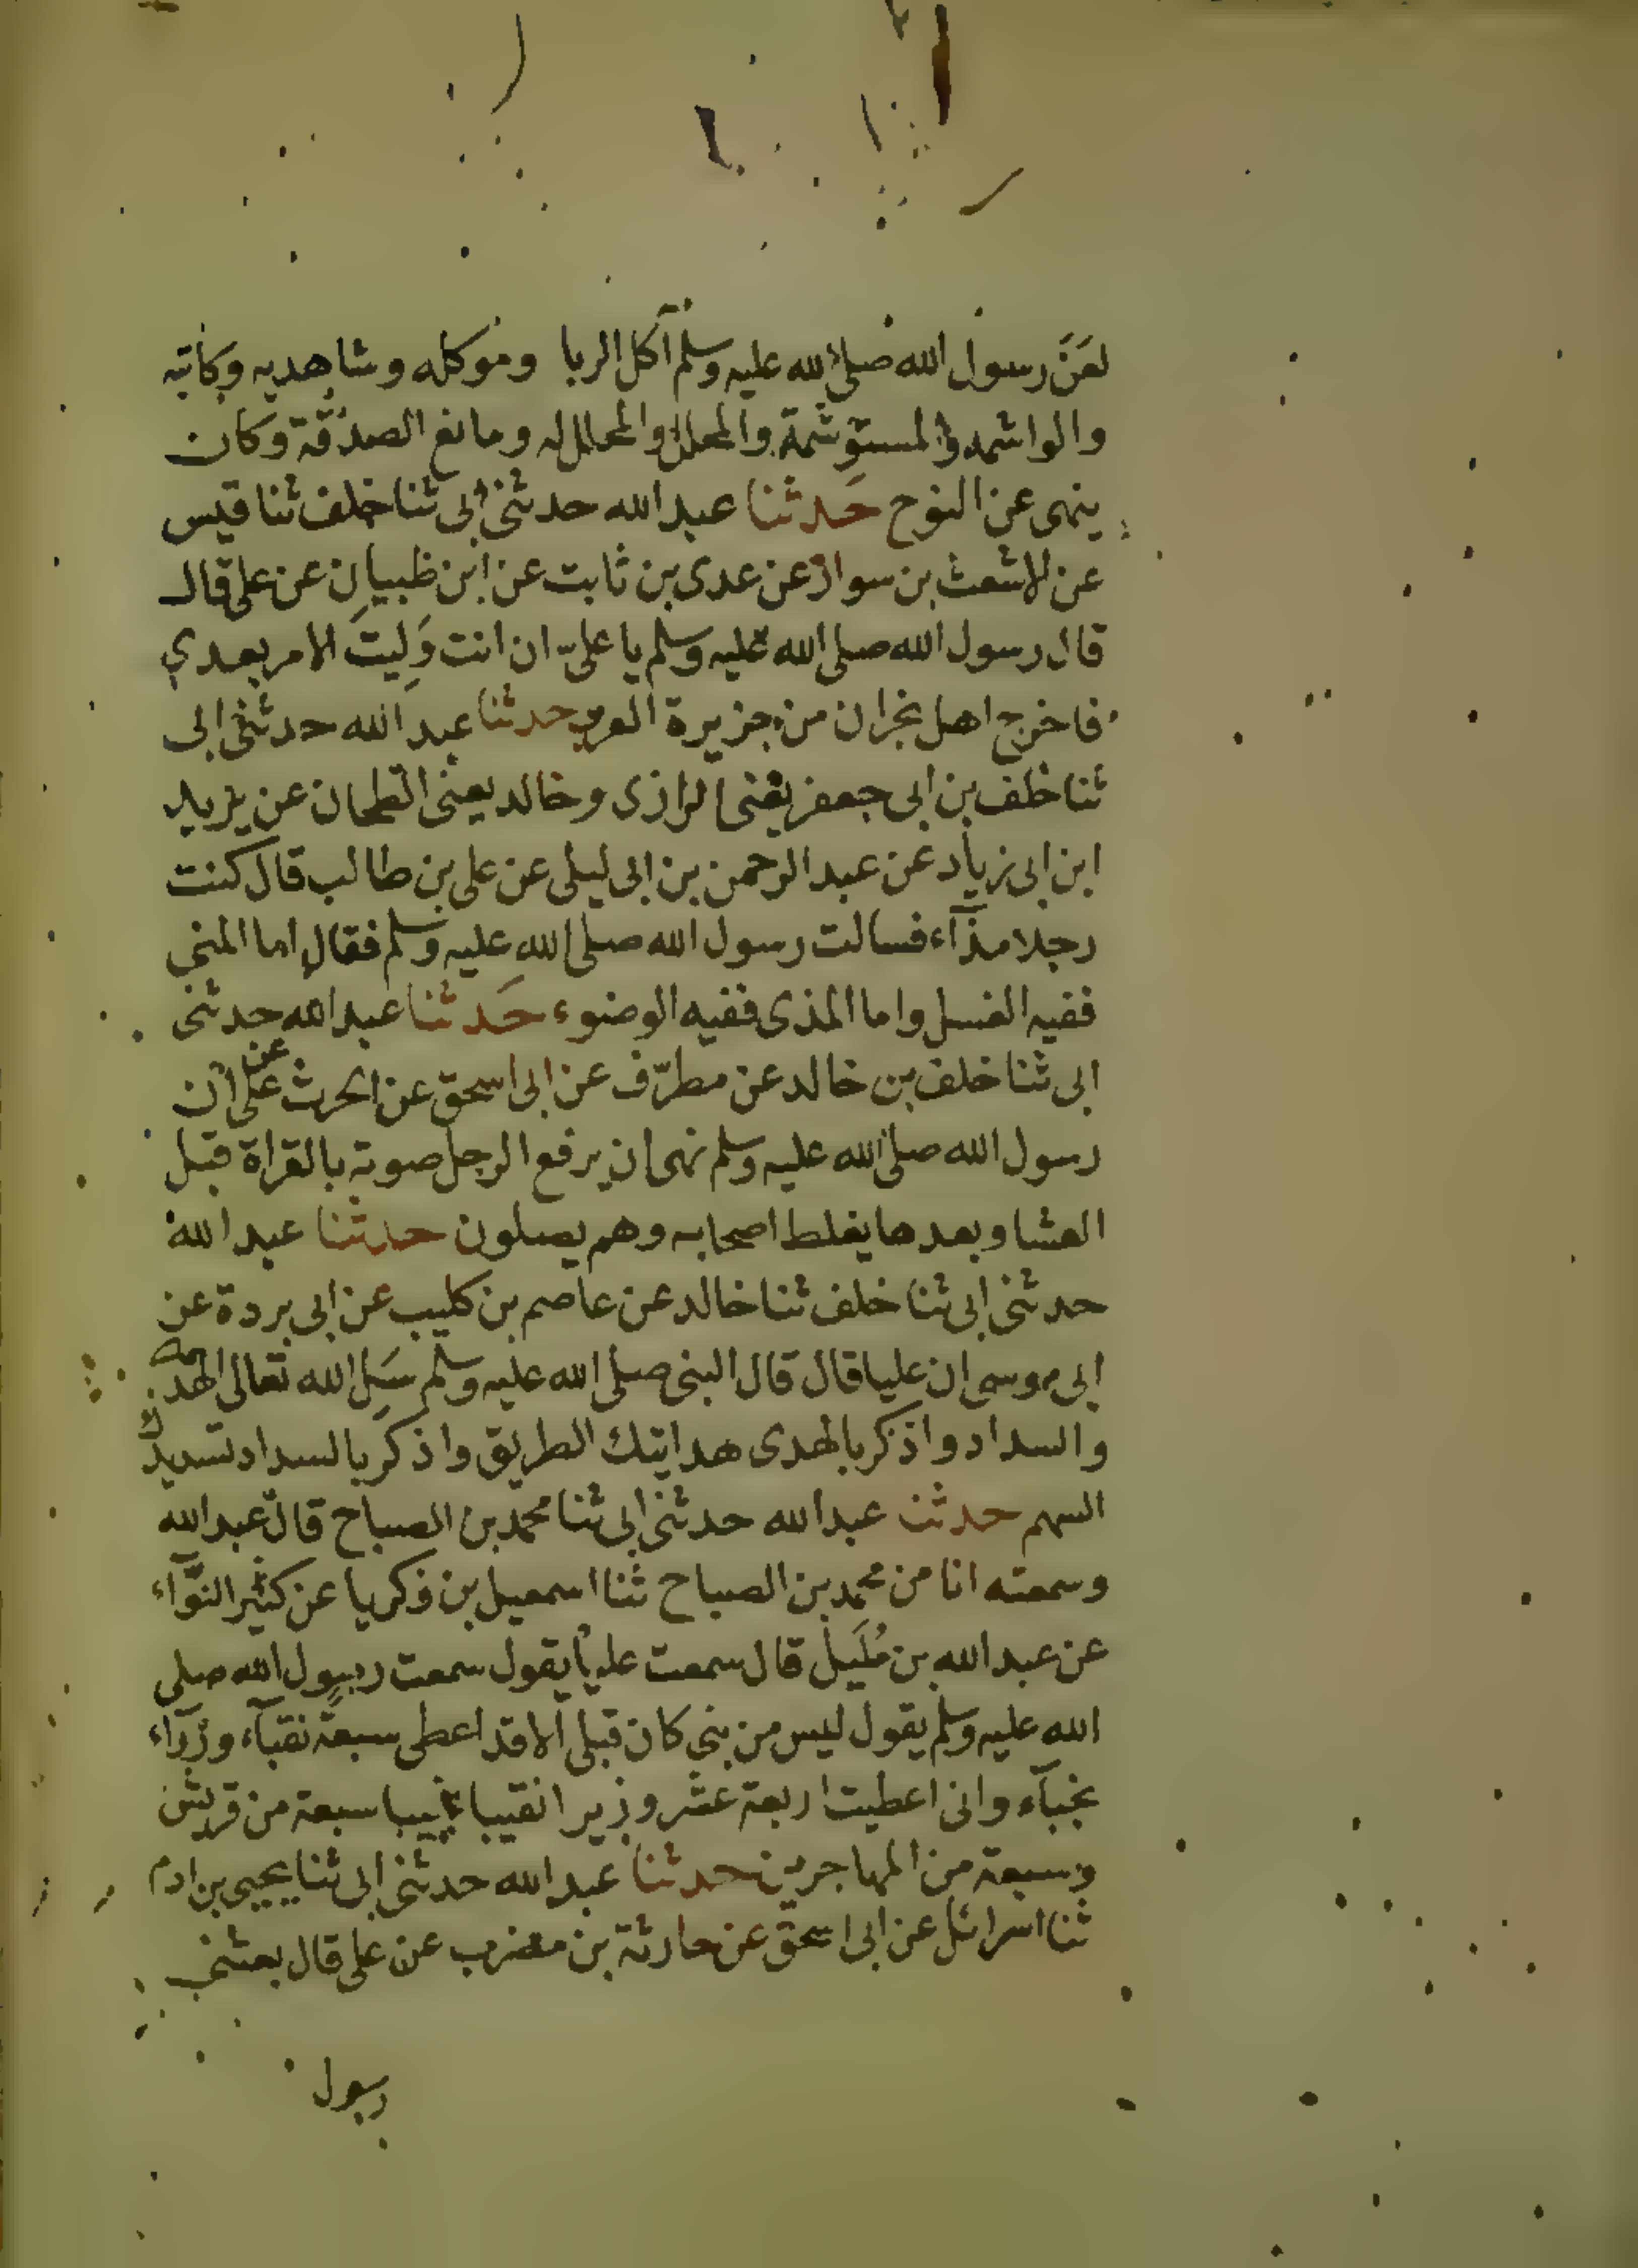 لعَنَ رسول الله صلى الله عليه وسلم آكل الربا وموكله وشاهديه وكاتبه
والواشمه والمستوشمة والمحلل والمحلل له ومانع الصدقة وكان
ينهى عن النوح حَدثنا عبد الله حدثنى ابى ثنا خلف ثنا قيس
عن الاشعث بن سوار عن عدى بن ثابت عن ابن ظبيان عن على قال
قال رسول الله صلى الله عليه وسلم يا علىّ ان انت وَلِيتَ الامر بعدي
فاخرج اهل نجران من جزيرة العرب حدثنا عبد الله حدثنى ابى
ثنا خلف بن ابى جعفر يعنى الرازى وخالد يعنى الطحان عن يزيد
ابن ابى زياد عن عبد الرحمن بن ابى ليلى عن على بن طالب قال كنت
رجلا مذآء فسالت رسول الله صلى الله عليه وسلم فقال اما المنى
ففيه الغسل واما المذى ففيه الوضوء حَدثنا عبد الله حدثنى
ابى ثنا خلف بن خالد عن مطرّف عن ابى اسحق عن الحرث عن على ان
رسول الله صلى الله عليه وسلم نهى ان يرفع الرجل صوته بالقراة قبل
العشا وبعدها يغلط اصحابه وهم يصلون حدثنا عبد الله
حدثنى ابى ثنا خلف ثنا خالد عن عاصم بن كليب عن ابى بردة عن
ابى موسى ان عليا قال قال النبى صلى الله عليه وسلم سَلِ الله تعالى الهدى
والسداد واذكر بالهدى هدايتك الطريق واذكر بالسداد تسديدك
السهم حدثنا عبد الله حدثنى ابى ثنا محمد بن الصباح قال عبد الله
وسمعته انا من محمد بن الصباح ثنا اسمعيل بن زكريا عن كثير النوَّآء
عن عبد الله بن مُلَيل قال سمعت عليا يقول سمعت رسول الله صلى
الله عليه وسلم يقول ليس من نبى كان قبلى الا قد اعطى سبعةً نقبآء وزرآء
نجبآء وانى اعطيت اربعة عشر وزيرا نقيبا نجيبا سبعة من قريش
وسبعة من المهاجرين حدثنا عبد الله حدثنى ابى ثنا يحيى بن ادم
ثنا اسرائل عن ابى اسحق عن حارثة بن مضرب عن على قال بعثنى
رسول